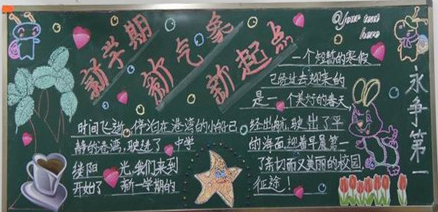 新学期
新气象
新起点
Your text
here
一个短暂的寒假
已经过去迎来的
是一个美好的春天
永争第一
时间飞逝，停泊在港湾的小船已
静的港湾，驶进了
缕阳光，我们来到
开始了新一学期的
经出航，驶出了平
的海面，迎着早晨第一
了亲切而又美丽的校园
征途！